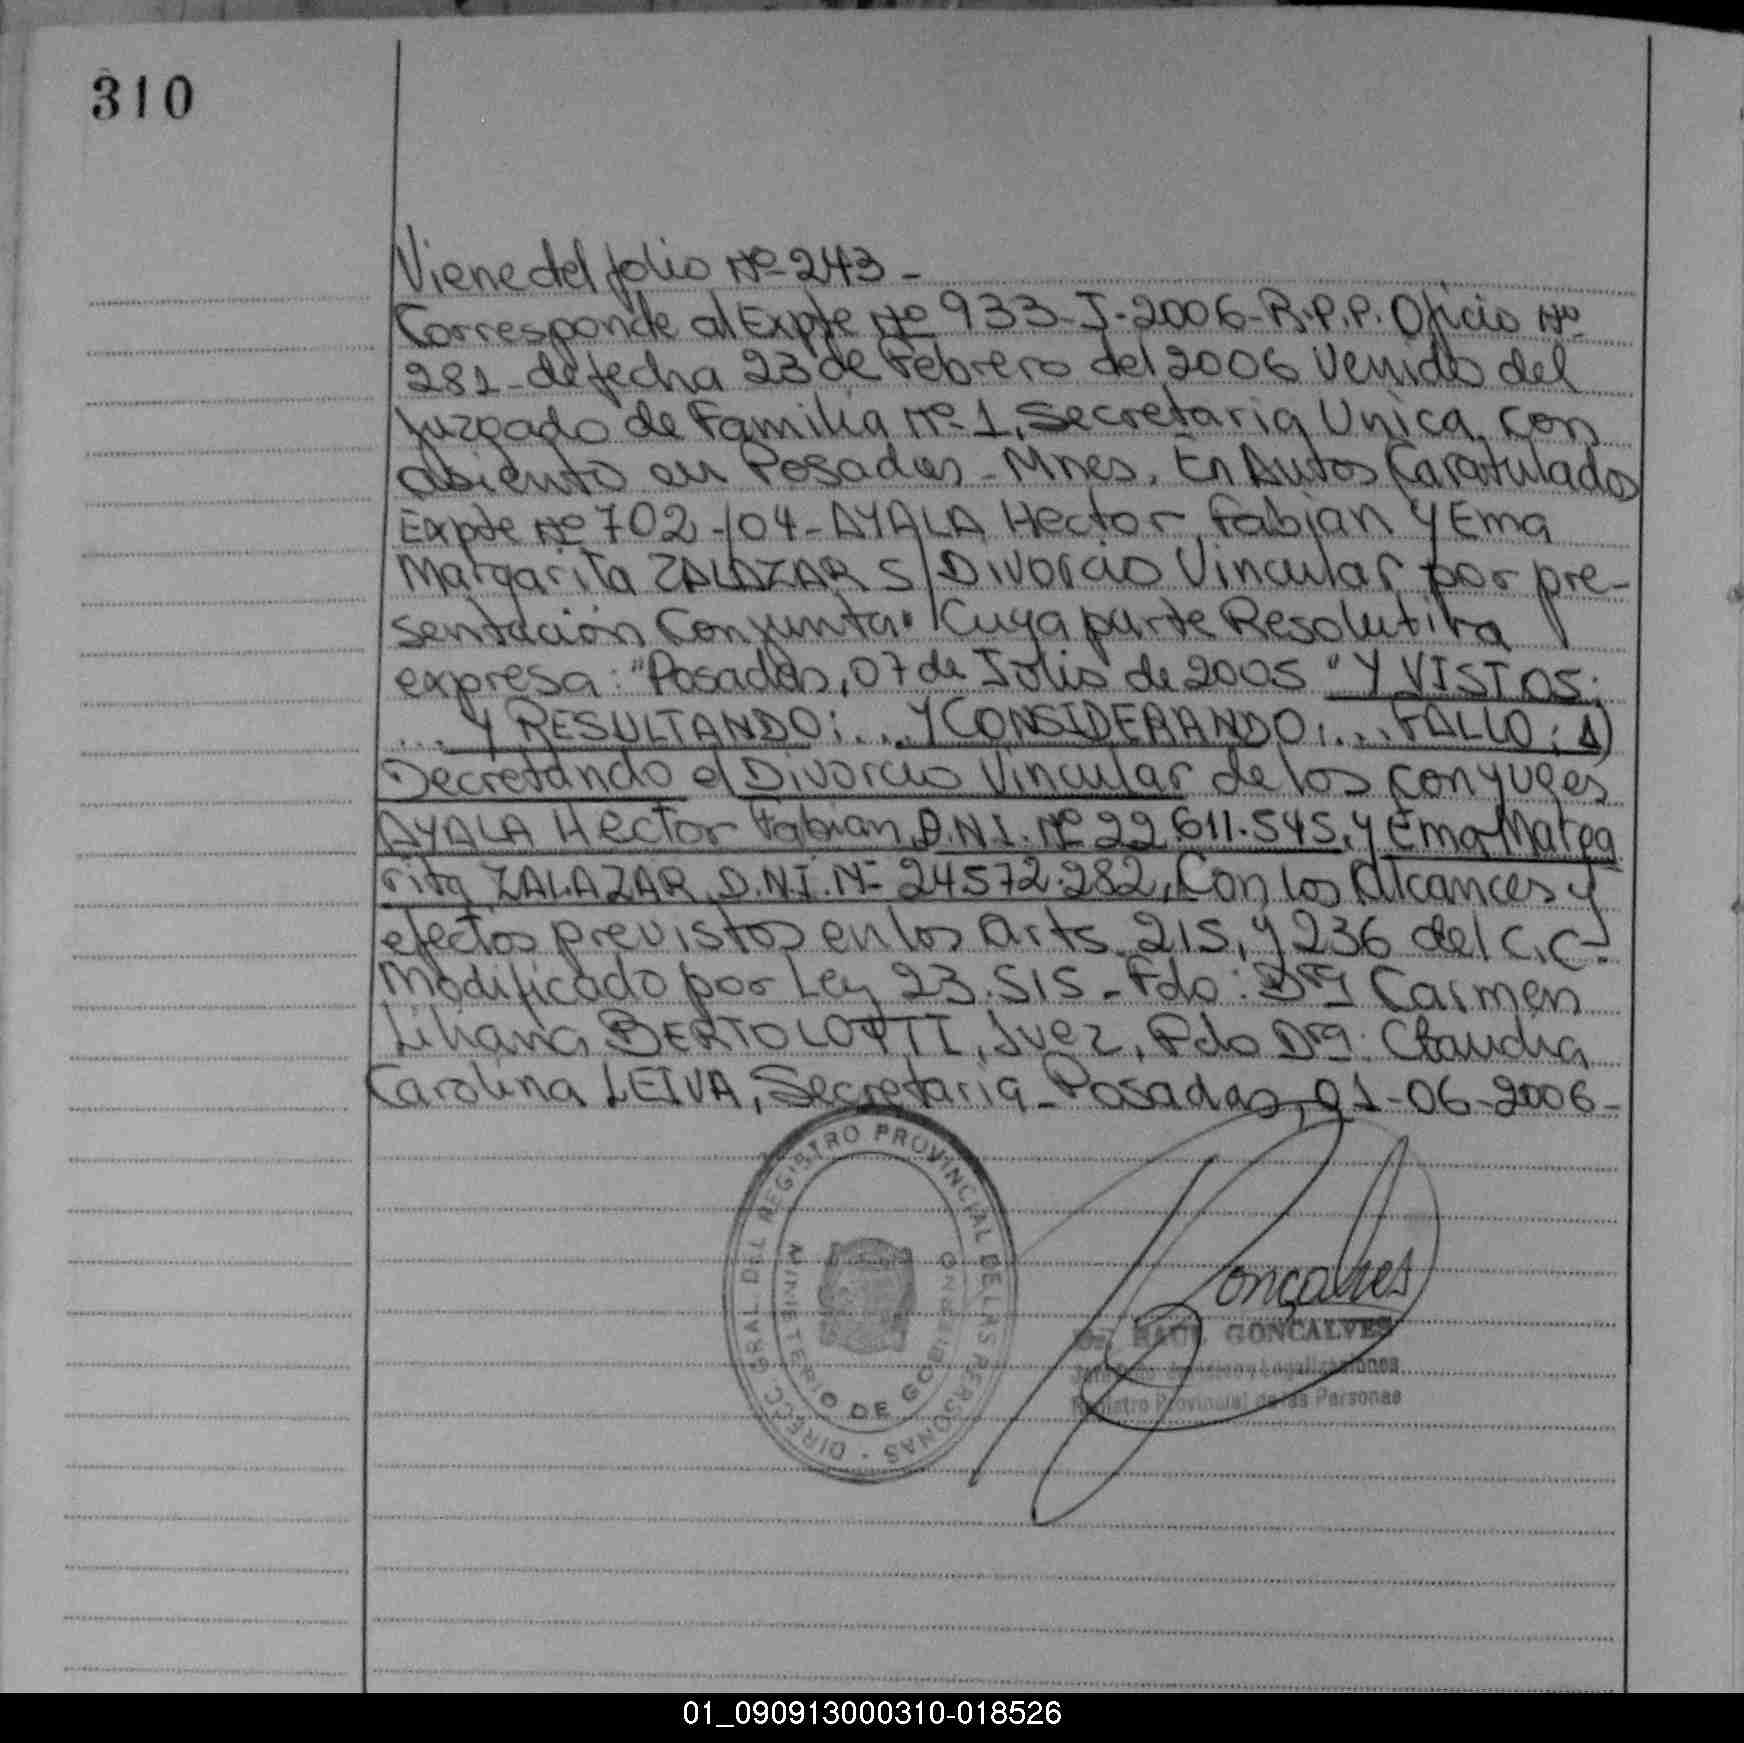 310
Viene del folio Nº 243 -
Corresponde al Expte Nº 933-J-2006-R.P.P. Oficio Nº
281- de fecha 23 de Febrero del 2006 Venido del
Juzgado de Familia Nº 1, Secretaria Unica, con
asiento en Posadas - Mnes. En Autos Caratulados
Expte Nº 702-/04- AYALA Hector Fabian y Ema
Margarita ZALAZAR S/Divorcio Vincular por pre-
sentación Conjunta" Cuya parte Resolutiva
expresa: "Posadas, 07 de Julio de 2005 "Y VISTOS:
... Y RESULTANDO: ... Y CONSIDERANDO: ... FALLO: 1)
Decretando el Divorcio Vincular de los conyuges
AYALA Hector Fabian, D.N.I. Nº 22.611.545, y Ema Marga
rita ZALAZAR, D.N.I. Nº 24.572.282, Con los alcances y
efectos previstos en los arts. 215, y 236 del C.C.
Modificado por Ley 23.515 - Fdo: Dra Carmen
Liliana BERTOLOTTI, Juez, Fdo Dra: Claudia
Carolina LEIVA, Secretaria - Posadas, 01-06-2006 -
DIRECC. GRAL. DEL REGISTRO PROVINCIAL DE LAS PERSONAS
MINISTERIO DE GOBIERNO
Goncalves
Dr. RAUL GONCALVES
Legalizaciones
Registro Provincial de las Personas
01_090913000310-018526